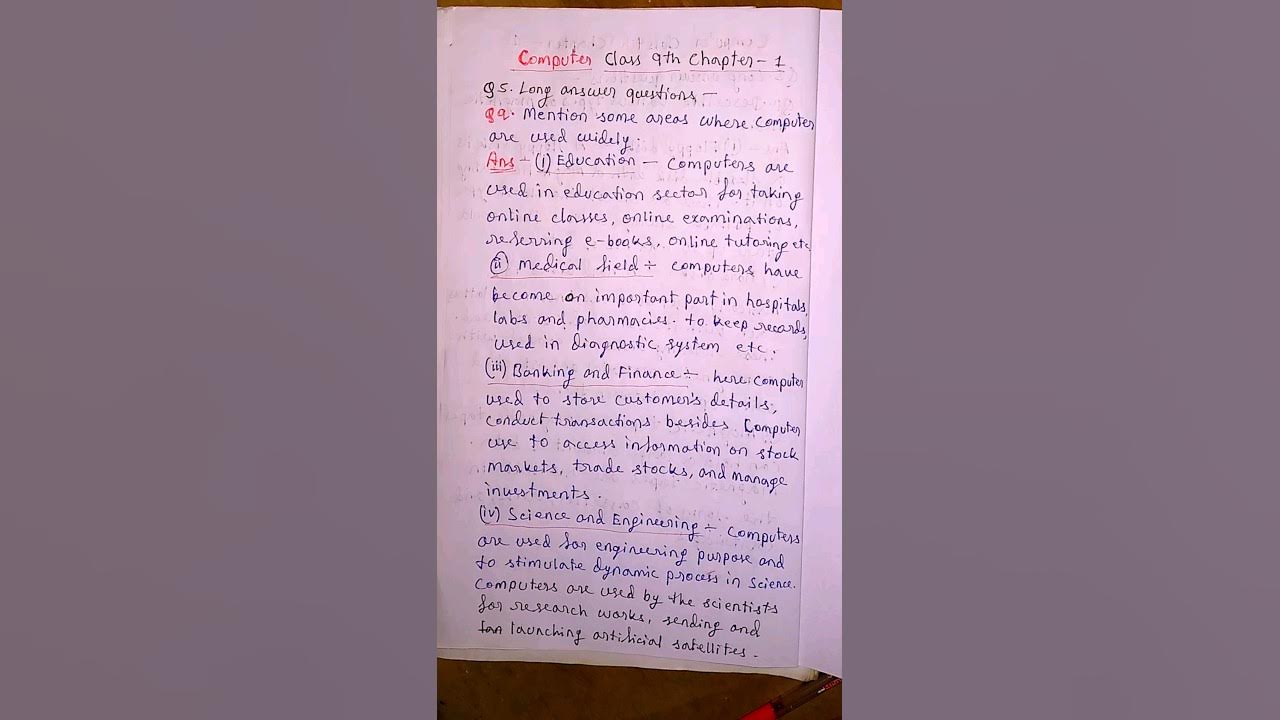 Computer Class 9th Chapter - 1
Q5. Long answer questions -
Q9. Mention some areas where computer
are used widely.
Ans - (i) Education - Computers are
used in education sector for taking
online classes, online examinations,
referring e-books, online tutoring etc
(ii) Medical field ÷ computers have
become an important part in hospitals,
labs and pharmacies. to keep records,
used in diagnostic system etc.
(iii) Banking and Finance ÷ here computer
used to store customer's details,
conduct transactions besides. Computer
use to access information on stock
markets, trade stocks, and manage
investments.
(iv) Science and Engineering ÷ Computers
are used for engineering purpose and
to stimulate dynamic process in science.
Computers are used by the scientists
for research works, sending and
launching artificial satellites.